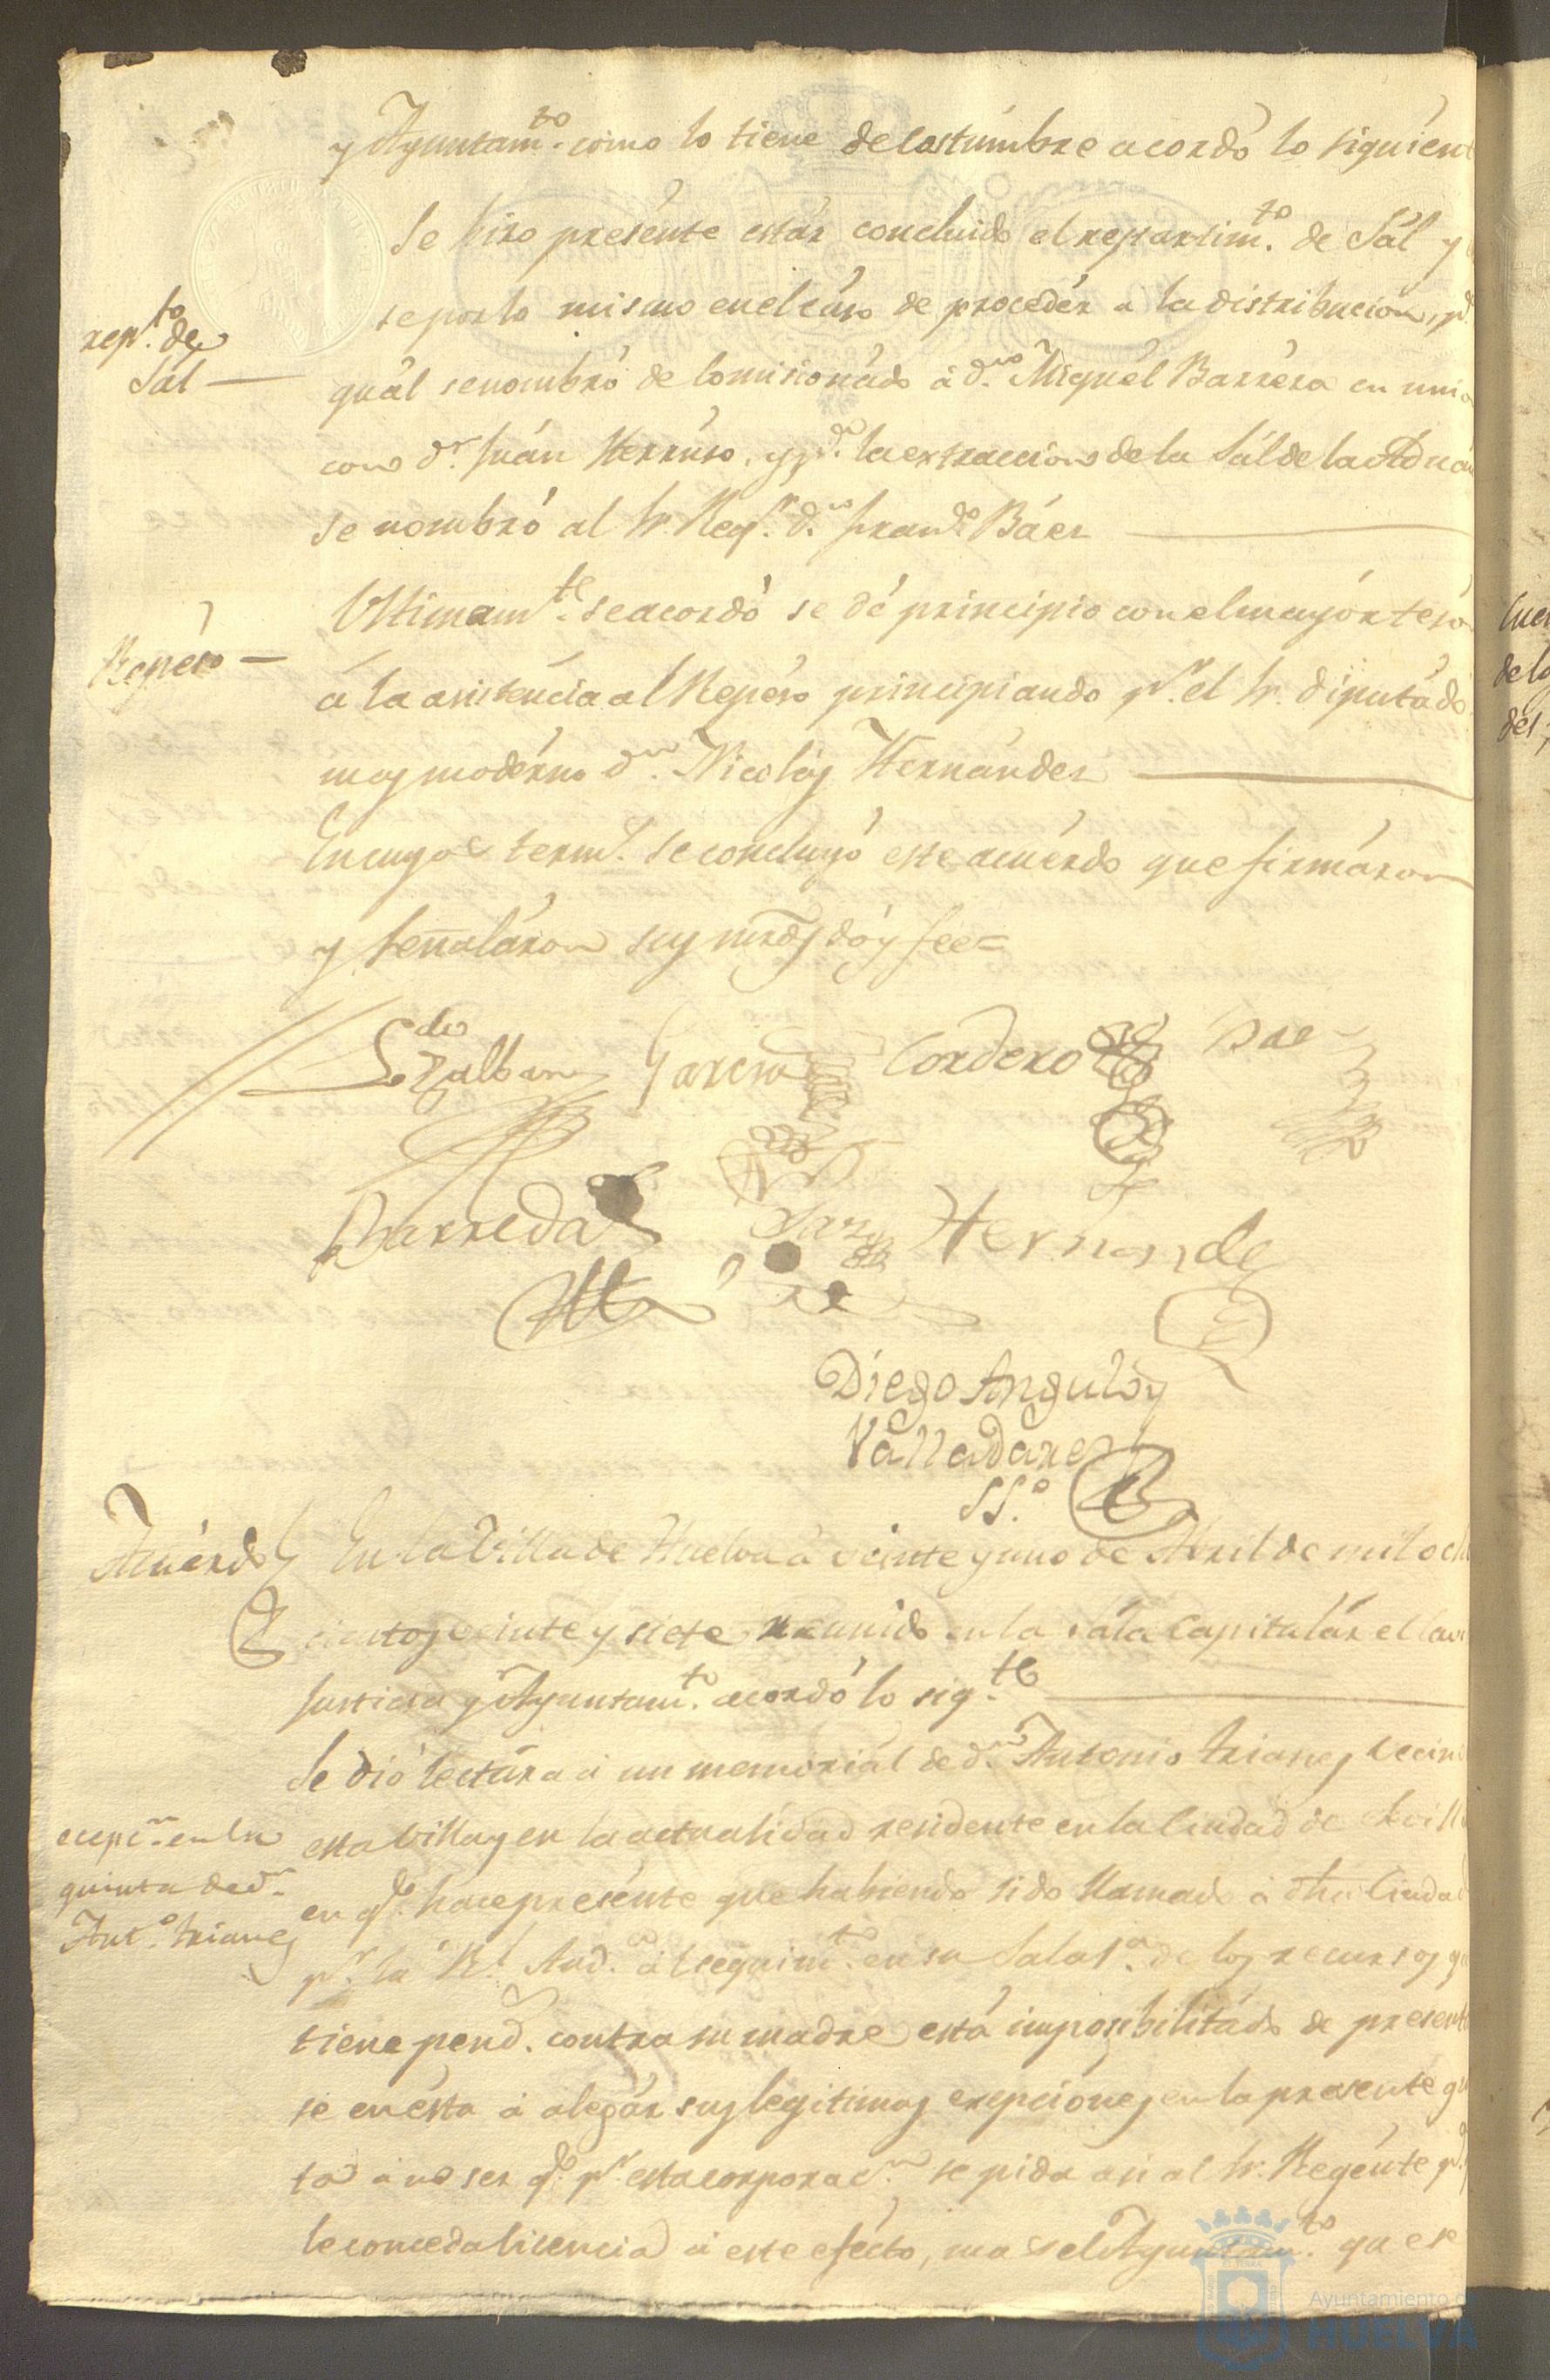 y Ayuntam.to como lo tiene de Costúmbre acordó lo siguient
Se hizo presénte estár concluido el repartim.to de Sál y
rep.to de
Sál —
se por lo mismo en el cáso de procedér a la distribución, p.
quál se nombró de Comisionádo á d.n Miguél Barréra en unio
con d.n Juán Herrúzo, y p.a la extraccion de la Sál de la Aduán
se nombró al Sr. Reg.r d.n Fran.co Báez
Ultimam.te se acordó se dé principio con el mayór tesón
Repéso —
á la asisténcia al Repéso principiando p.r el Sr. diputádo
mas modérno d.n Nicolás Hernández
En cuyos term.s se concluyó este acuérdo que firmáron
y señaláron sus mrds dóy fee=
L.do Zalban Garcia Cordero Bae
Barreda Hernandez
Diego Angulo y
Valladares
SS.o
Acuérdo
En la Villa de Huelva á veinte y uno de Abril de mil och
cientos veinte y siete reunido en la sála Capitulár el Con
Justicia y Ayuntam.to acordó lo sig.te
Se dió lectúra á un memoriál de d.n Antonio trianes vecin
ecepc.n en la
quinta de d.n
Ant.o trianes
esta Villa y en la actualidad residente en la Ciudad de Sevilla
en q.e hace presénte que habiendo sido llamado á dha Ciudad
p.r la R.l Aud.a al seguim.to en su Sala 1.a de los recursos q
tiene pend. contra su madre está imposibilitádo de present
se en ésta á alegár sus legitimas exepciónes en la presente qu
ta á no ser q.e p.r esta corporac.n se pida asi al Sr. Regénte p.
le conceda licencia á este efécto, mas el Ayuntam.to que se
Cuen
de lo
des
Ayuntamiento de
HUELVA